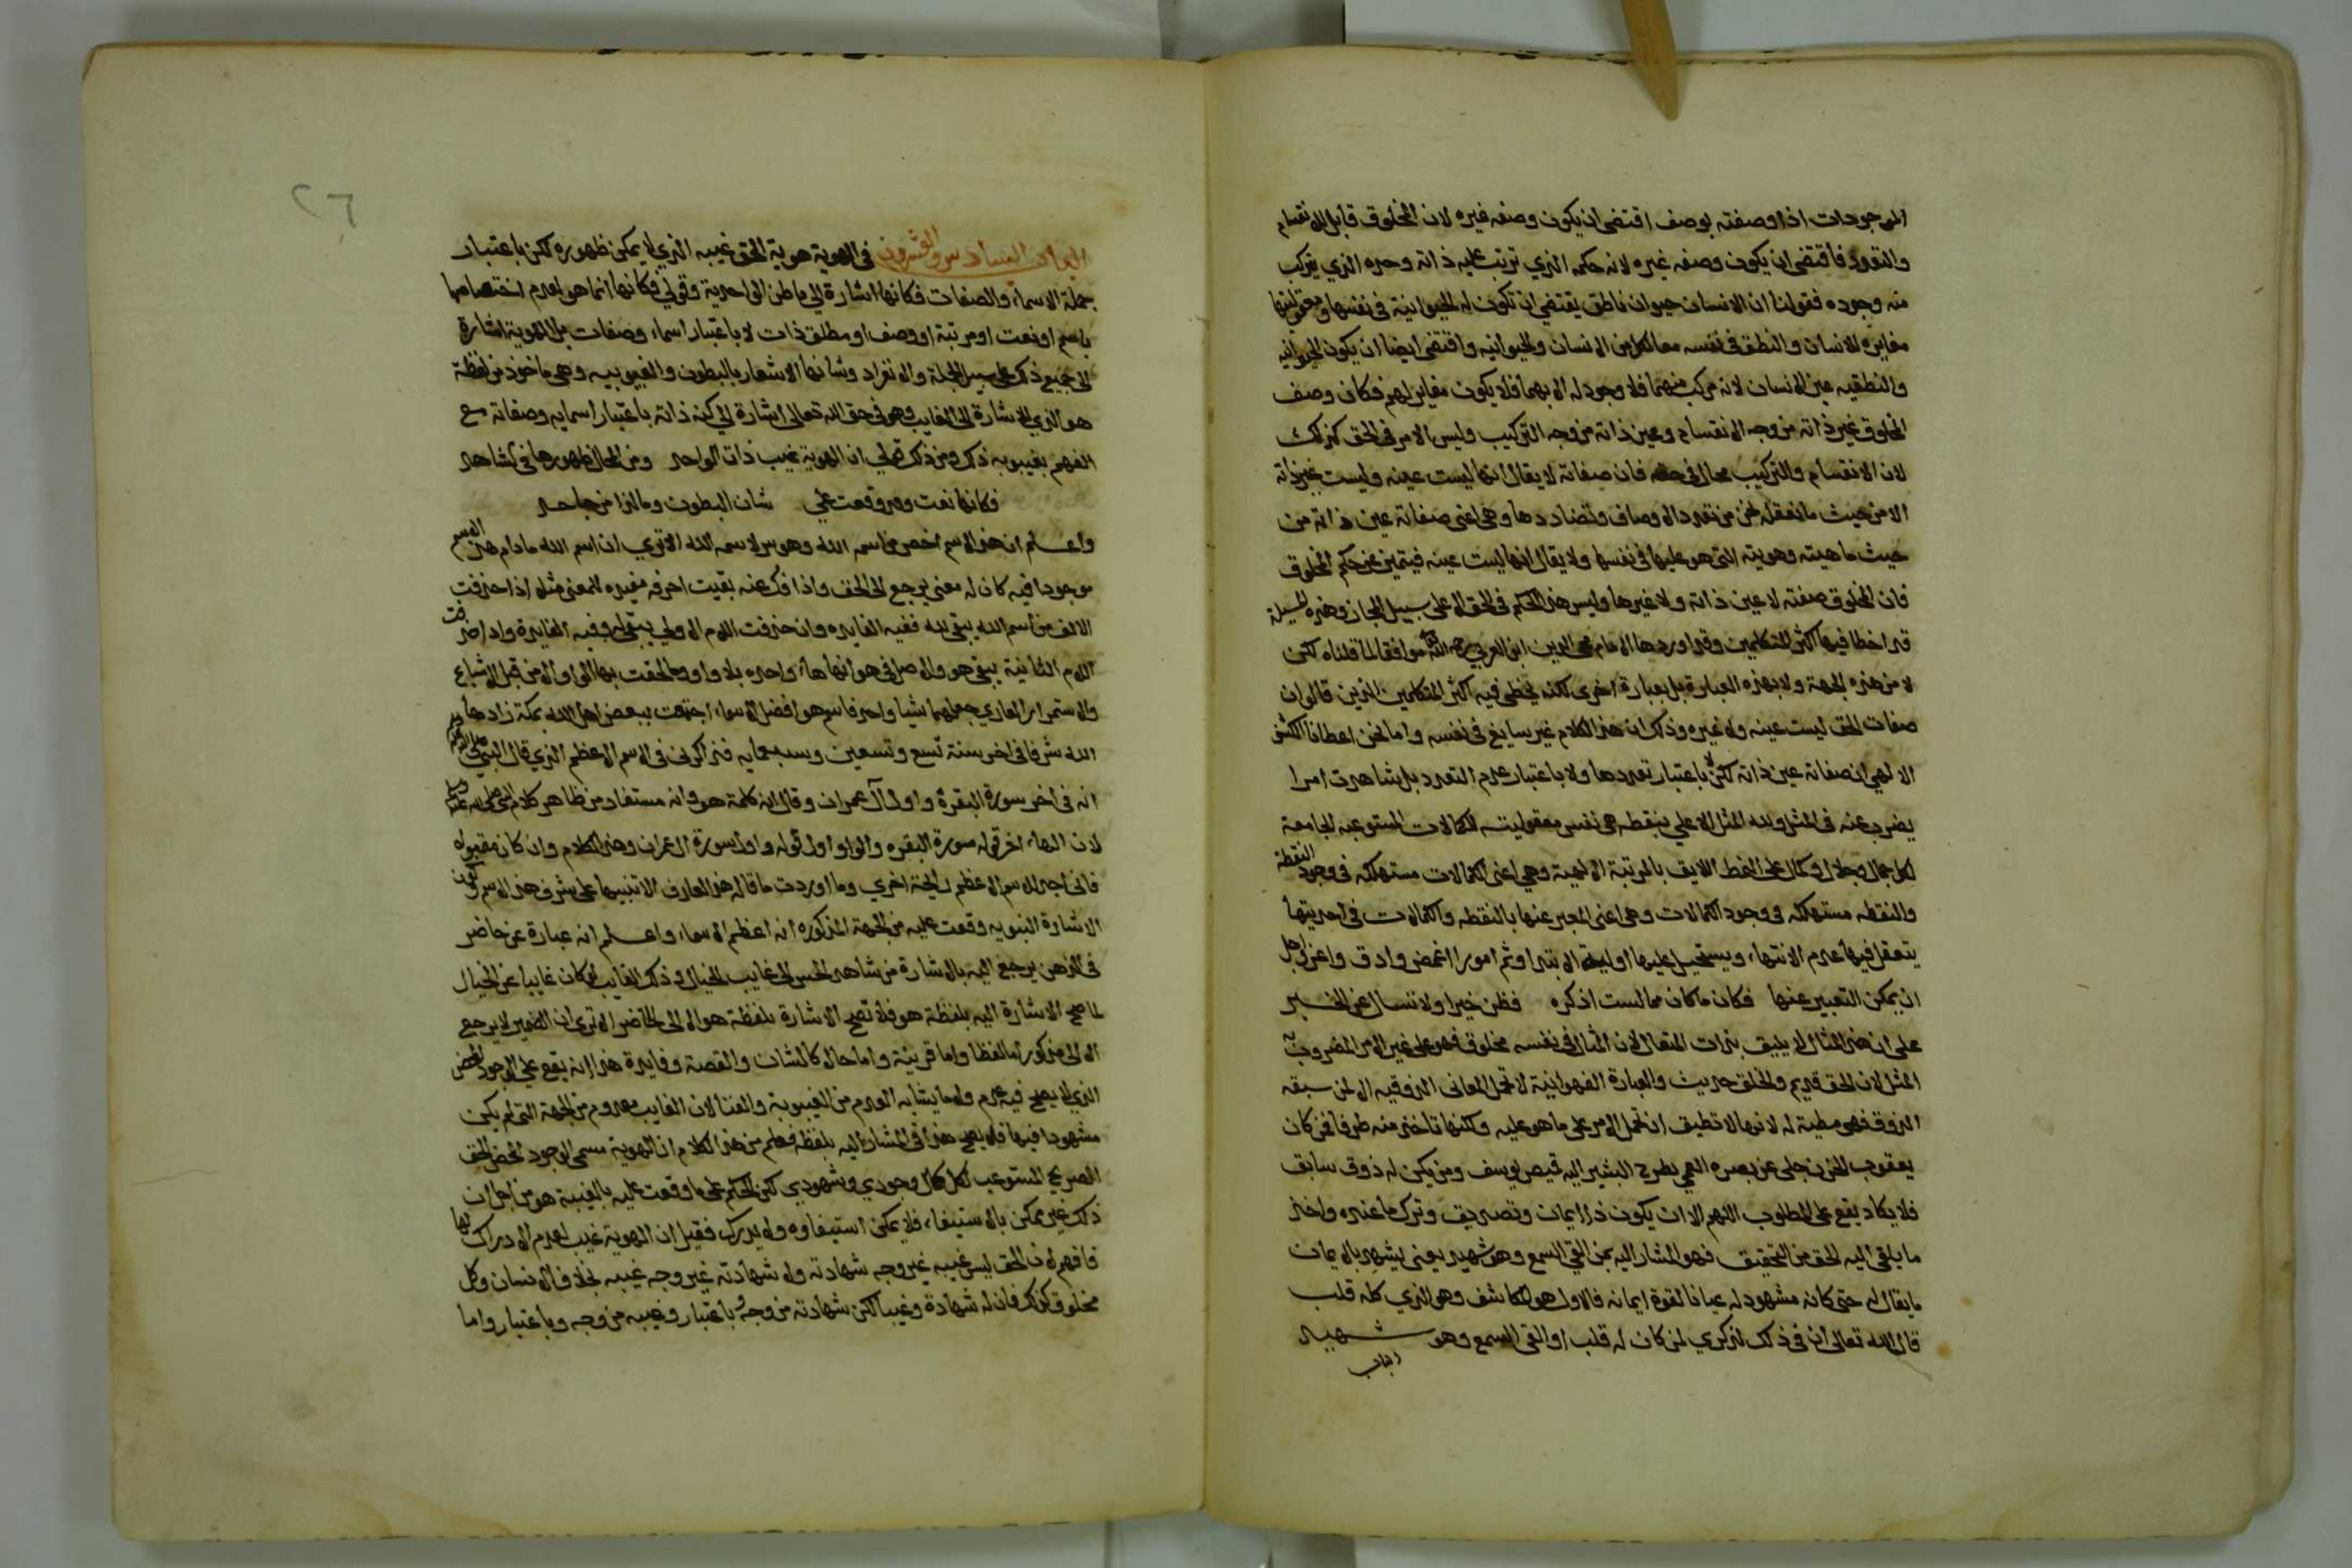 الموجودات اذا وصفته بوصف اقتضى ان يكون وصفه غيره لان المخلوق قابل للانقسام
والتعدد فاقتضى ان يكون وصفه غيره لانه حكمه الذي ترتب عليه ذاته وحده الذي يتركب
منه وجوده فقولنا ان الانسان حيوان ناطق يقتضي ان تكون له الحيوانية في نفسها ومعقوليتها
مغايره للانسان والنطق في نفسه مغاير لكل من الانسان والحيوانيه واقتضى ايضا ان يكون الحيوانيه
والنطقيه عين الانسان لانه مركب منهما فلا وجود له الا بهما فلا يكون مغاير لهم فكان وصف
المخلوق غير ذاته من وجه الانقسام وعين ذاته من وجه التركيب وليس الامر في الحق كذلك
لان الانقسام والتركيب محال في حقه فان صفاته لا يقال انها ليست عينه وليست غير ذاته
الا من حيث ما نعقله نحن من تعدد الاوصاف وتضاددها وهي اعني صفاته عين ذاته من
حيث ماهيته وهويته التي هو عليها في نفسها ولا يقال انها ليست عينه فيتميز عن حكم المخلوق
فان المخلوق صفته لا عين ذاته ولا غيرها وليس هذا الحكم في الحق الا على سبيل المجاز وهذه المسيلة
قد اخطا فيها اكثر المتكلمين وقد اوردها الامام محي الدين ابن العربي رحمه الله موافقا لما قلناه لكن
لا من هذه الجهة ولا بهذه العبارة بل بعبارة اخرى لكنه يخطي فيه اكثر المتكلمين الذين قالوا ان
صفات الحق ليست عينه ولا غيره وذكر ان هذا الكلام غير سايغ في نفسه واما نحن اعطانا الكشف
الالهي ان صفاته عين ذاته لكن لا باعتبار تعددها ولا باعتبار عدم التعدد بل شاهدت امرا
يضرب عنه في المثل ولله المثل الاعلي بنقطه هي نفس معقوليته للكمالات المستوعبه الجامعة
لكل جمال وجلال وكمال على النمط اللايق بالمرتبة الالهية وهي اعني الكمالات مستهلكه في وجود النقطة
والنقطه مستهلكه في وجود الكمالات وهي اعني المعبر عنها بالنقطه والكمالات في احديتها
يتعقل فيها عدم الانتهاء ويستحيل عليها اولية الابتدا وثم امورا اغمض وادق واعز واجل
ان يمكن التعبير عنها فكان ما كان مما لست اذكره فظن خيرا ولا تسال عن الخبر
على ان هذا المثال لا يليق بذات المتعال لان المثال في نفسه مخلوق فهو على غير الامر المضروب به
المثل لان الحق قديم والخلق حديث والعبارة الفهوانية لا تحمل المعاني الذوقيه الا لمن سبقه
الذوق فهي مطية له لانها لا تطيق ان تحمل الامر على ما هو عليه ولكنها تاخذ منه طرفا فمن كان
يعقوب الحزن جلى عن بصره العمي بطرح البشير اليه قميص يوسف ومن يكن له ذوق سابق
فلا يكاد يقع على المطلوب اللهم الا ان يكون ذا ايمان وتصديق وترك ما عنده واخذ
ما يلقى اليه الحق من التحقيق فهو المشار اليه بمن القي السمع وهو شهيد يعني يشهد بالايمان
ما يقال له حتى كانه مشهود له عيانا لقوة ايمانه فالاول هو المكاشف وهو الذي كله قلب
قال الله تعالى ان في ذلك لذكري لمن كان له قلب او القى السمع وهو شهيد
الباب
٢٦
الباب السادس والعشرون في الهوية هوية الحق غيبه الذي لا يمكن ظهوره لكن باعتبار
جملة الاسماء والصفات فكانها اشارة الي باطن الواحدية وقولي فكانها انما هو لعدم اختصاصها
باسم او نعت او مرتبة او وصف او مطلق ذات لا باعتبار اسماء وصفات بل الهوية اشارة
الى جميع ذلك على سبيل الجملة والانفراد وشانها الاشعار بالبطون والغيبوبيه وهي ماخوذ من لفظة
هو الذي للاشارة الى الغايب وهو في حق الله تعالى اشارة الي كنه ذاته باعتبار اسمايه وصفاته مع
الفهم بغيبوبه ذلك ومن ذلك قولي ان الهوية غيب ذات الواحد ومن المحال ظهورها في الشاهد
فكانها نعت وقد وقعت علي شان البطون وما لذا من جاحد
واعلم ان هذا الاسم اخص من اسمه الله وهو سر لاسمه الله الا تري ان اسم الله ما دام هذا الاسم
موجودا فيه كان له معنى يرجع الى الحق واذا فك عنه بقيت احرفه غير مفيده لمعنى مثلا اذا حذفت
الالف من اسم الله يبقى لله ففيه الفايده وان حذفت اللام الاولي يبقى له وفيه الفايدة واذا حذفت
اللام الثانية يبقى هو والاصل في هو انها هاء واحده بلا واو وما لحقت بها الواو الا من قبل الاشباع
والاستمرار العادي جعلهما شيا واحدا فاسم هو افضل الاسماء اجتمعت ببعض اهل الله بمكة زادها
الله شرفا في اخر سنة تسع وتسعين وسبعمايه فذاكرني في الاسم الاعظم الذي قال النبي صلى الله عليه وسلم
انه في اخر سورة البقرة واول آل عمران وقال انه كلمة هو وانه مستفاد من ظاهر كلام النبي صلى الله عليه وسلم
لان الهاء اخر قوله سورة البقره والواو اول قوله واول سورة ال عمران وهذا الكلام وان كان مقبولا
فاني اجد للاسم الاعظم رايحة اخري وما اوردت ما قاله هذا العارف الا تنبيها على شرف هذا الاسم وكون
الاشارة النبويه وقعت عليه من الجهة المذكوره انه اعظم الاسماء واعلم انه عبارة عن حاضر
في الذهن يرجع اليه بالاشارة من شاهد الحس الى غايب الخيال وذلك الغايب لو كان غايبا عن الخيال
لما صح الاشارة اليه بلفظة هو فلا تصح الاشارة بلفظة هو الا الى الحاضر الا تري ان الضمير لا يرجع
الا الى مذكور اما لفظا واما قرينة واما حالا كالشان والقصة وفايدة هذا انه يقع على الوجود المحض
الذي لا يصح فيه عدم ولا ما يشابه العدم من الغيبوبة والفنا لان الغايب معدوم من الجهة التي لم يكن
مشهودا فيها فلا يصح هذا في المشار اليه بلفظة فعلم من هذا الكلام ان الهوية مسمى الوجود المحض الحق
الصريح المستوعب لكل كمال وجودي وشهودي لكن الحكم على ما وقعت عليه بالغيبة هو من اجل ان
ذلك غير ممكن بالاستيفاء فلا يمكن استيفاوه ولا يدرك فقيل ان الهوية غيب لعدم الادراك لها
فافهم لان الحق ليس غيبه غير وجه شهادته ولا شهادته غير وجه غيبه بخلاف الانسان وكل
مخلوق كذلك فان له شهادة وغيبا لكن شهادته من وجه وباعتبار وغيبه من وجه وباعتبار واما